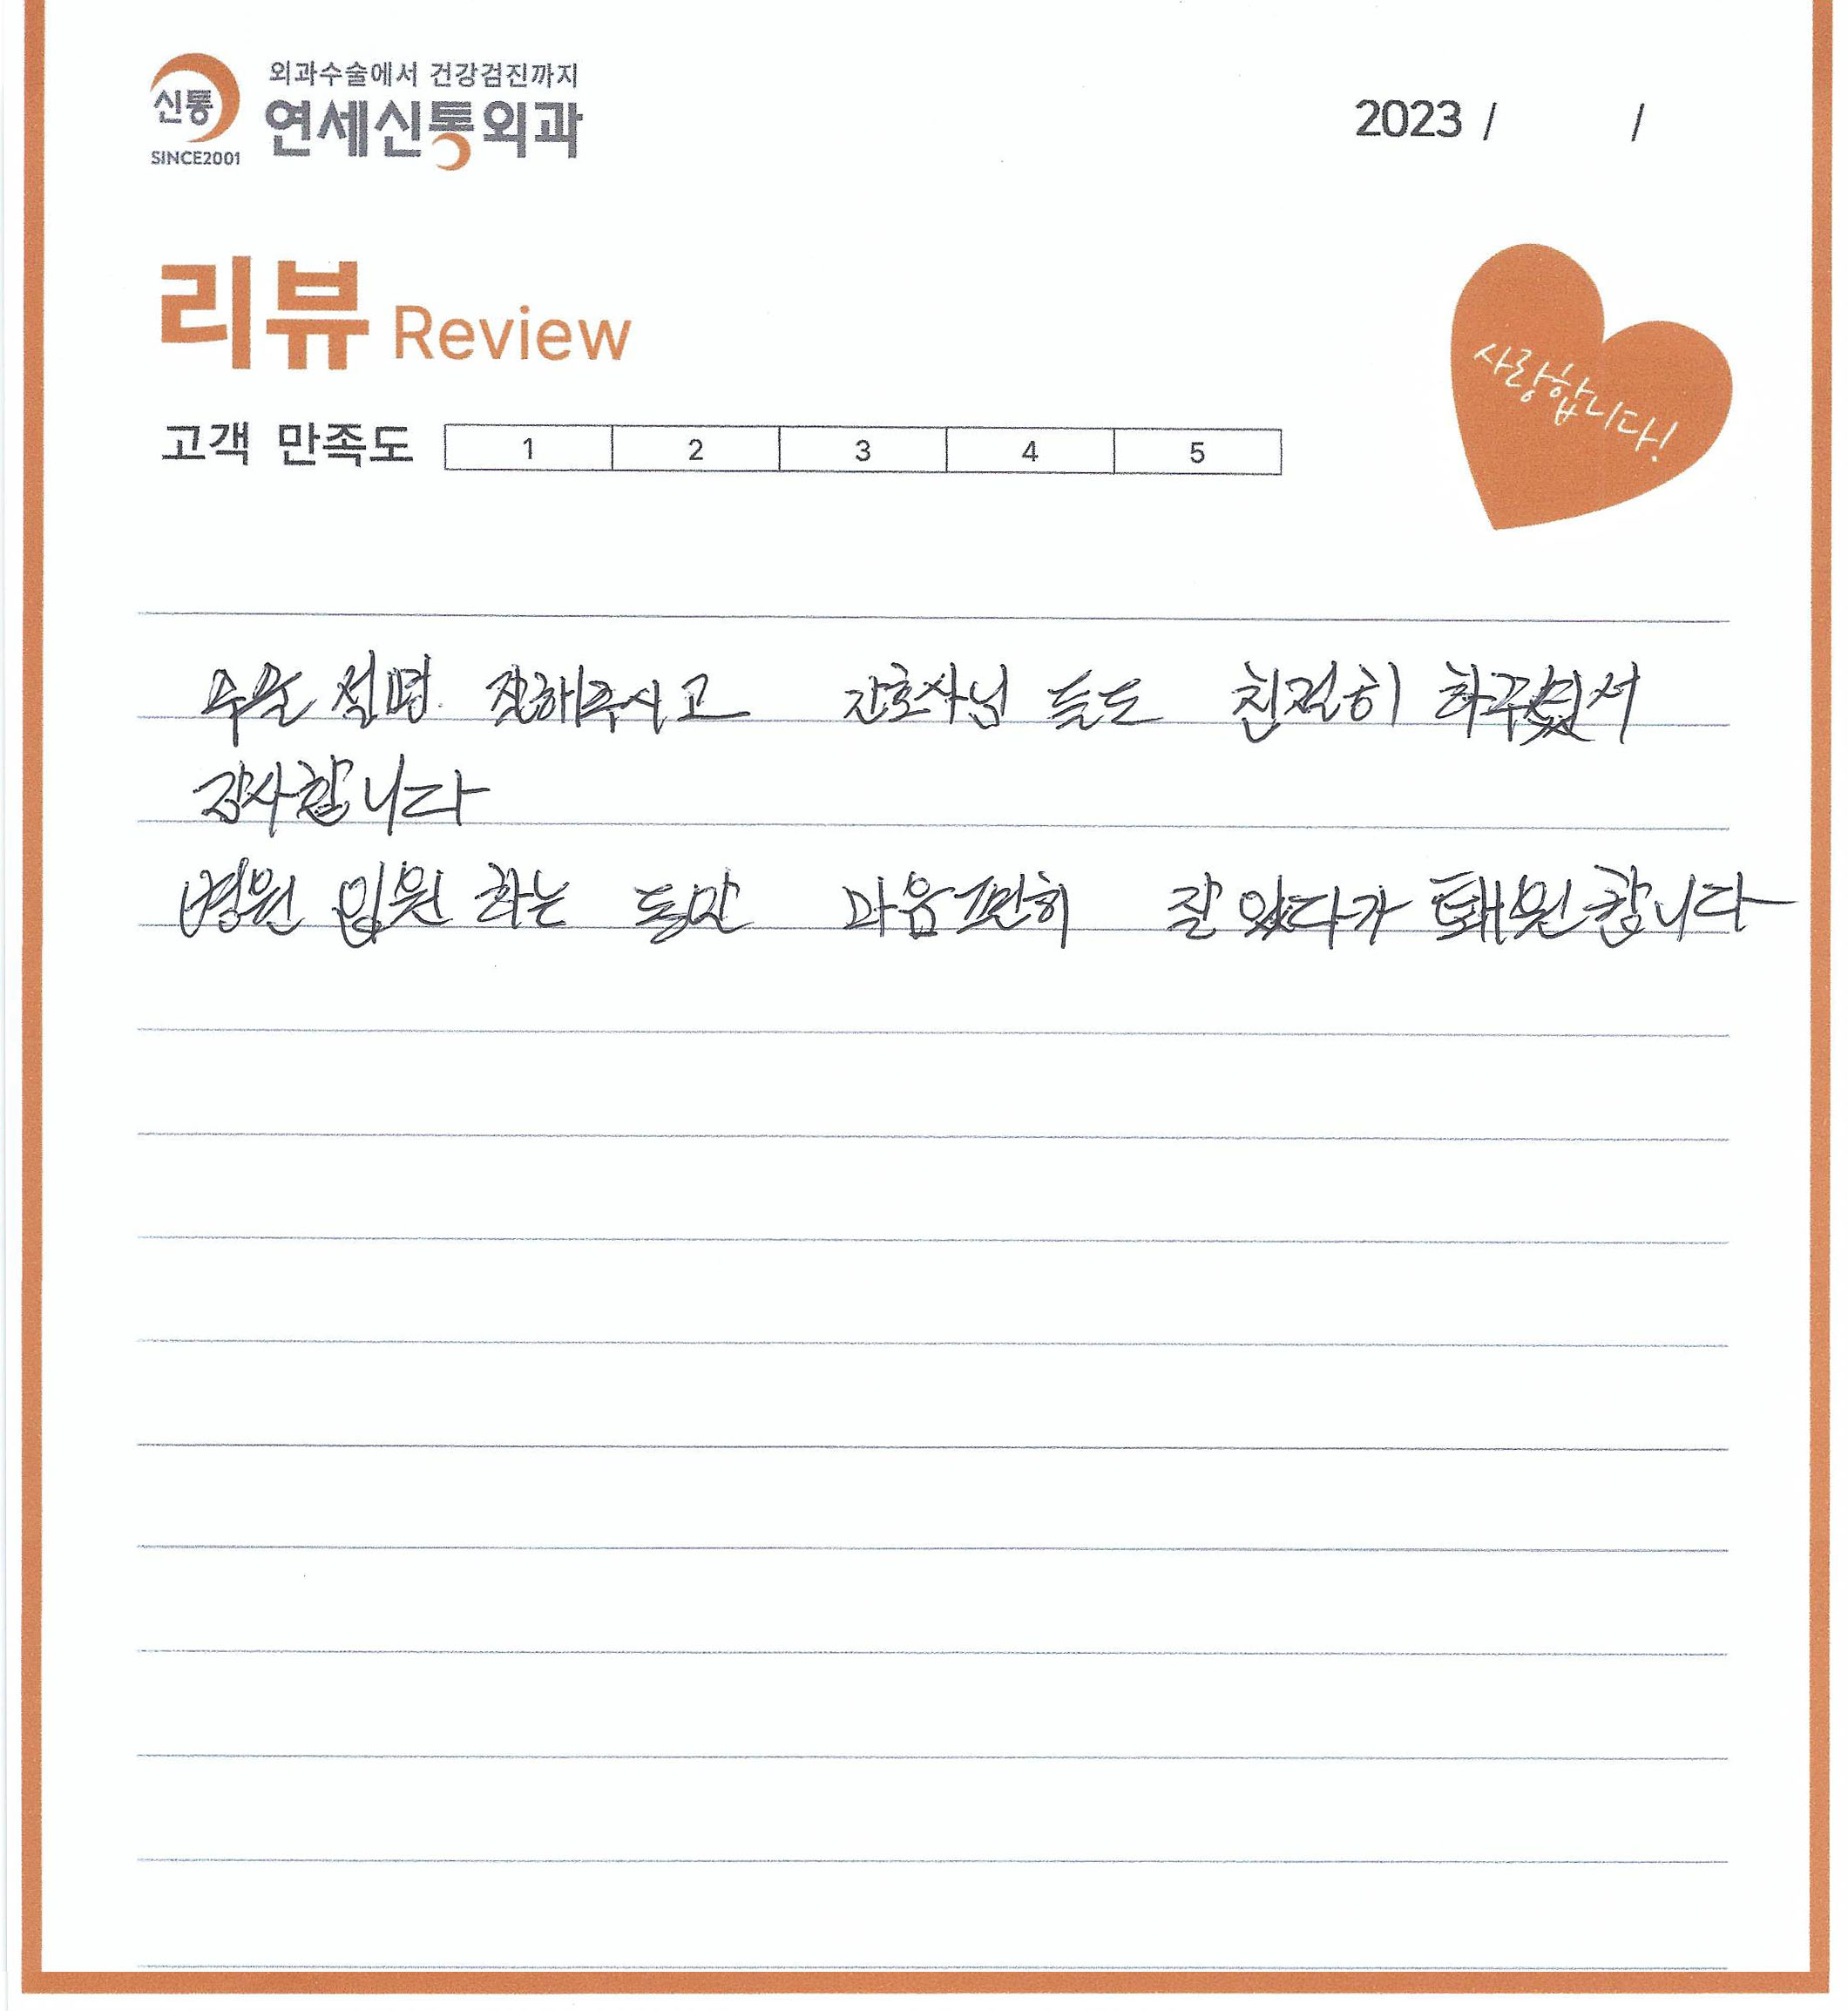 신통
SINCE2001
외과수술에서 건강검진까지
연세신통외과
2023 / /
리뷰 Review
사랑합니다!
고객 만족도 1 2 3 4 5
수술 설명 잘해주시고 간호사님 들도 친절히 하주셔서
감사합니다
병원 입원 하는 동안 마음편히 잘 있다가 퇴원합니다